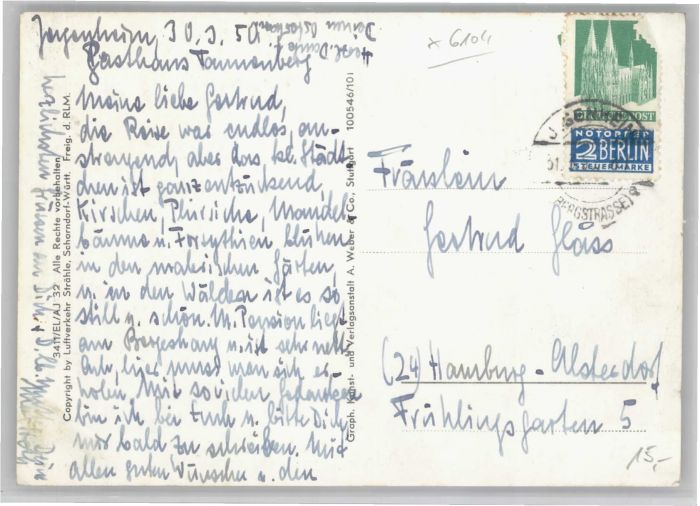 Jugenheim, 30.3.50
Gasthaus Tannenberg
Herzl. Dank f.
Deinen Ostertr
Meine liebe Gertrud,
die Reise war endlos, an-
strengend, aber das kl. Städt-
chen ist ganz entzückend,
Kirschen, Pfirsiche, Mandel
bäume u. Forsythien blühen
in den malerischen Gärten,
u. in den Wäldern ist es so
still u. schön. M. Pension liegt
am Bergeshang u. ist sehr nett
Ach, hier muss man sich er-
holen. Mit so vielen Gedanken
bin ich bei Euch u. bitte Dich
nur bald zu schreiben. Mit
allen guten Wünschen u. den
herzlichsten Grüssen an Dich
3411/EL/AJ 32 Alle Rechte vorbehalten
Copyright by Luftverkehr Strähle, Schorndorf-Württ. Freig. d. RLM.
Graph. Kunst- und Verlagsanstalt A. Weber & Co., Stuttgart 100546/101
x 6104
POST
NOTOPFER
2 BERLIN
STEUERMARKE
JUGENHEIM
31.
BERGSTRASSE
Fräulein
Gertrud Gläss
(24) Hamburg-Alsterdorf
Frühlingsgarten 5
15,-